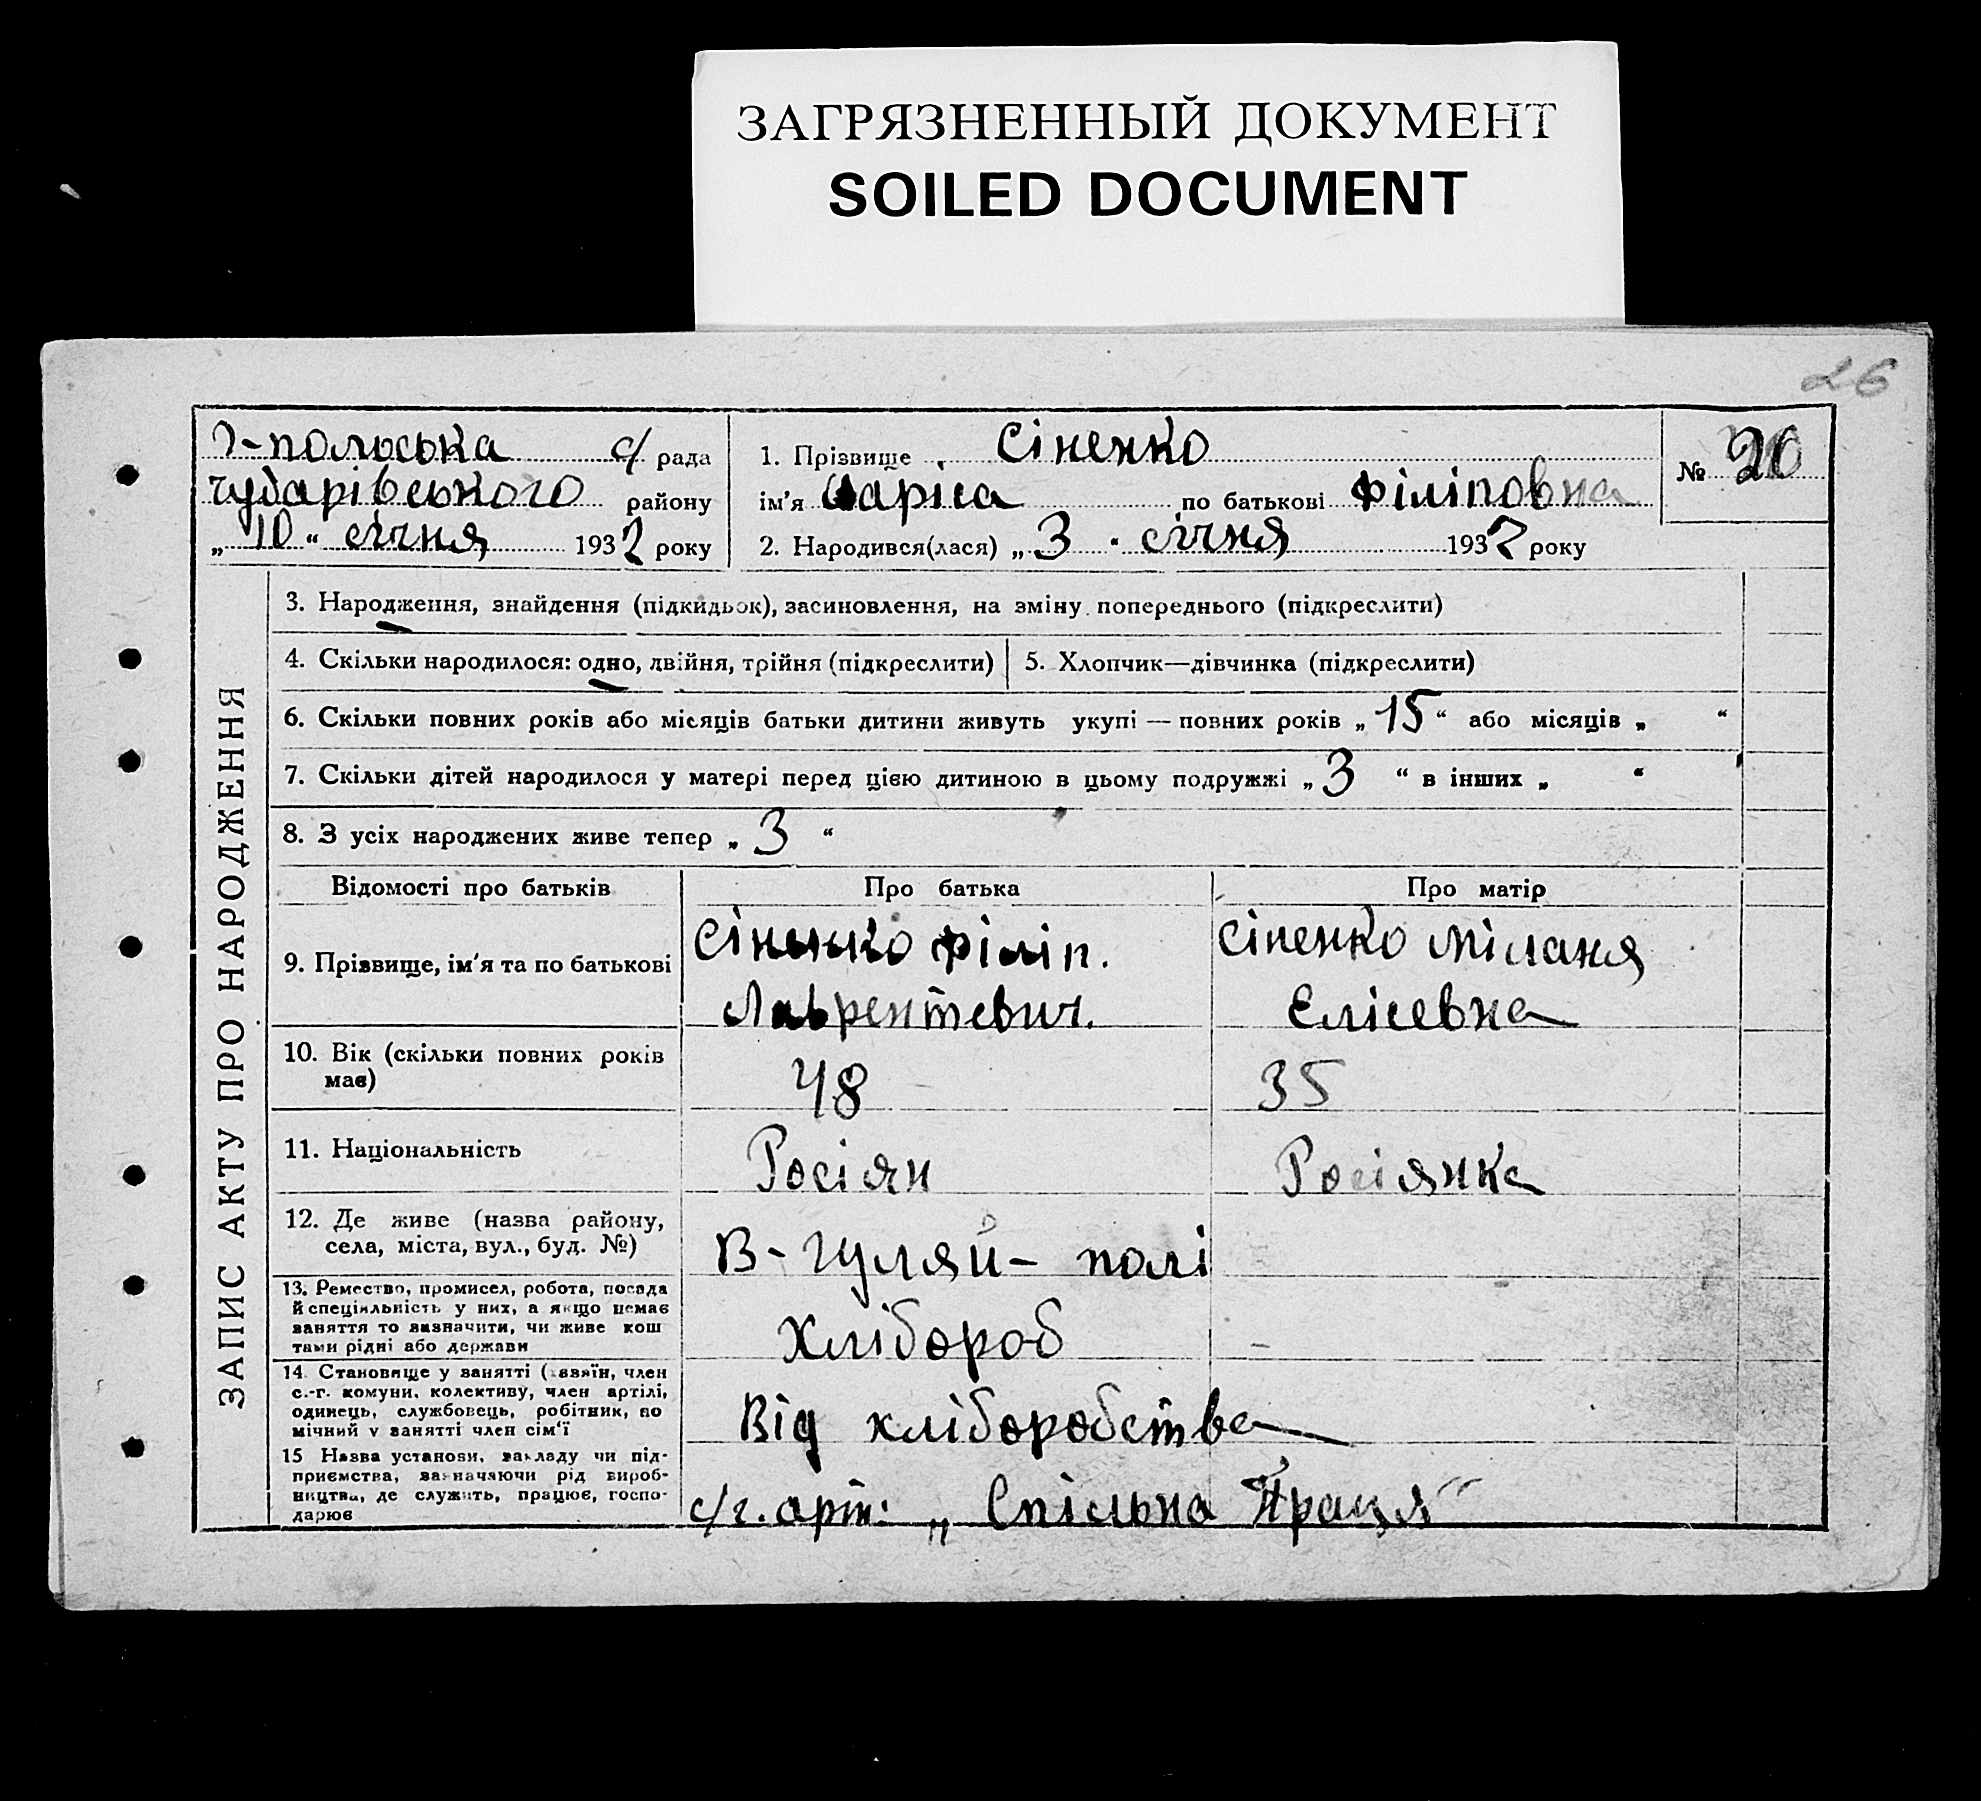 ЗАГРЯЗНЕННЫЙ ДОКУМЕНТ
SOILED DOCUMENT
26
Г-польська с/ рада
Чубарівського району
„ 10 “ січня 1932 року
1. Прізвище Сіненко
ім'я по батькові Філіповна
2. Народився(лася) „ 3 “ січня 1932 року
№ 20
ЗАПИС АКТУ ПРО НАРОДЖЕННЯ
3. Народження, знайдення (підкидьок), засиновлення, на зміну попереднього (підкреслити)
4. Скільки народилося: одно, двійня, трійня (підкреслити)
5. Хлопчик—дівчинка (підкреслити)
6. Скільки повних років або місяців батьки дитини живуть укупі — повних років „ 15 “ або місяців „ “
7. Скільки дітей народилося у матері перед цією дитиною в цьому подружжі „ 3 “ в інших „ “
8. З усіх народжених живе тепер „ 3 “
Відомості про батьків
Про батька
Про матір
9. Прізвище, ім'я та по батькові
Сіненко Філіп.
Лаврентевич.
Сіненко Міланя
Єлісевна
10. Вік (скільки повних років
має)
48
35
11. Національність
Росіян
Росіянка
12. Де живе (назва району,
села, міста, вул., буд. №)
В-Гуляй-полі
13. Ремество, промисел, робота, посада
й спеціяльність у них, а якщо немає
заняття то зазначити, чи живе кош
тами рідні або держави
Хлібороб
-
14. Становище у занятті (хазяїн, член
с.-г. комуни, колективу, член артілі,
одинець, службовець, робітник, по
мічний у занятті член сім'ї
Від хліборобства
15 Назва установи, закладу чи під-
приємства, зазначаючи рід вироб-
ництва, де служить, працює, госпо-
дарює
с/г. арт: „Спільна Праця“